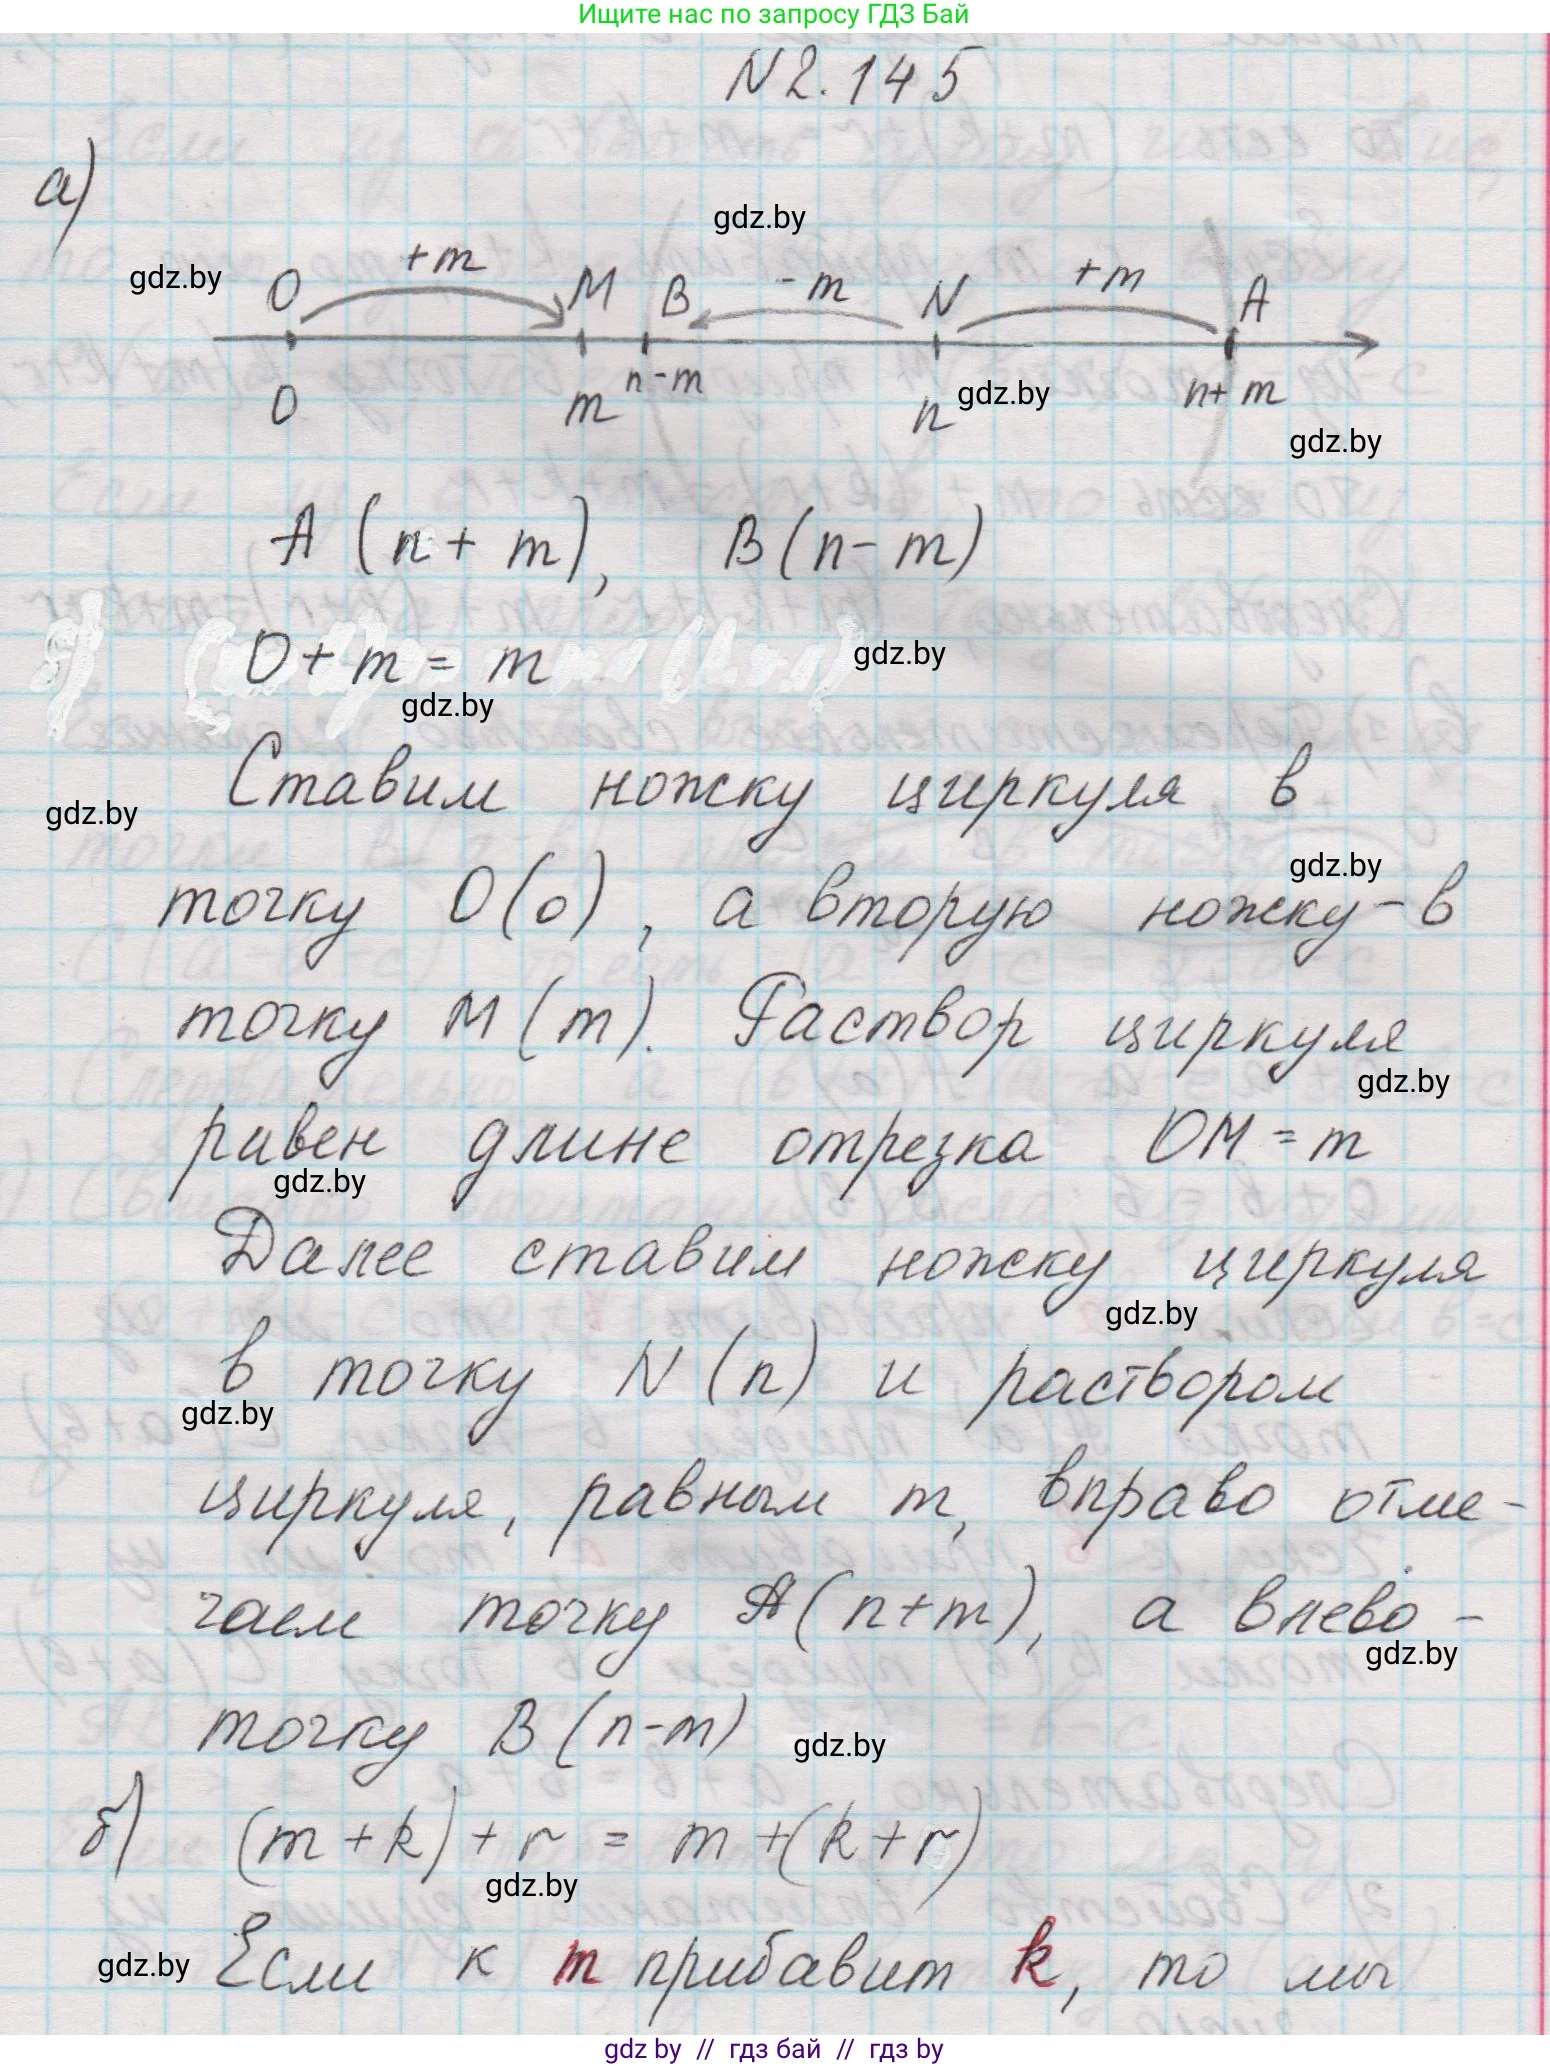 Ищите нас по запросу ГДЗ Бай
N2.145
а)
gdz.by
gdz.by
O +m M B -m N +m A
O m n-m n n+m
gdz.by
gdz.by
A (n+m), B(n-m)
O+m=m
gdz.by
gdz.by
Ставим ножку циркуля в
gdz.by
gdz.by
точку O(o), а вторую ножку-в
точку M(m). Раствор циркуля
gdz.by
равен длине отрезка OM=m
gdz.by
Далее ставим ножку циркуля
gdz.by
в точку N(n) и раствором
gdz.by
циркуля, равным m, вправо отме-
чаем точку A(n+m), а влево-
gdz.by
точку B(n-m)
gdz.by
б) (m+k)+r=m+(k+r)
gdz.by
Если к m прибавит k, то мы
gdz.by
gdz by // гдз бай // гдз by